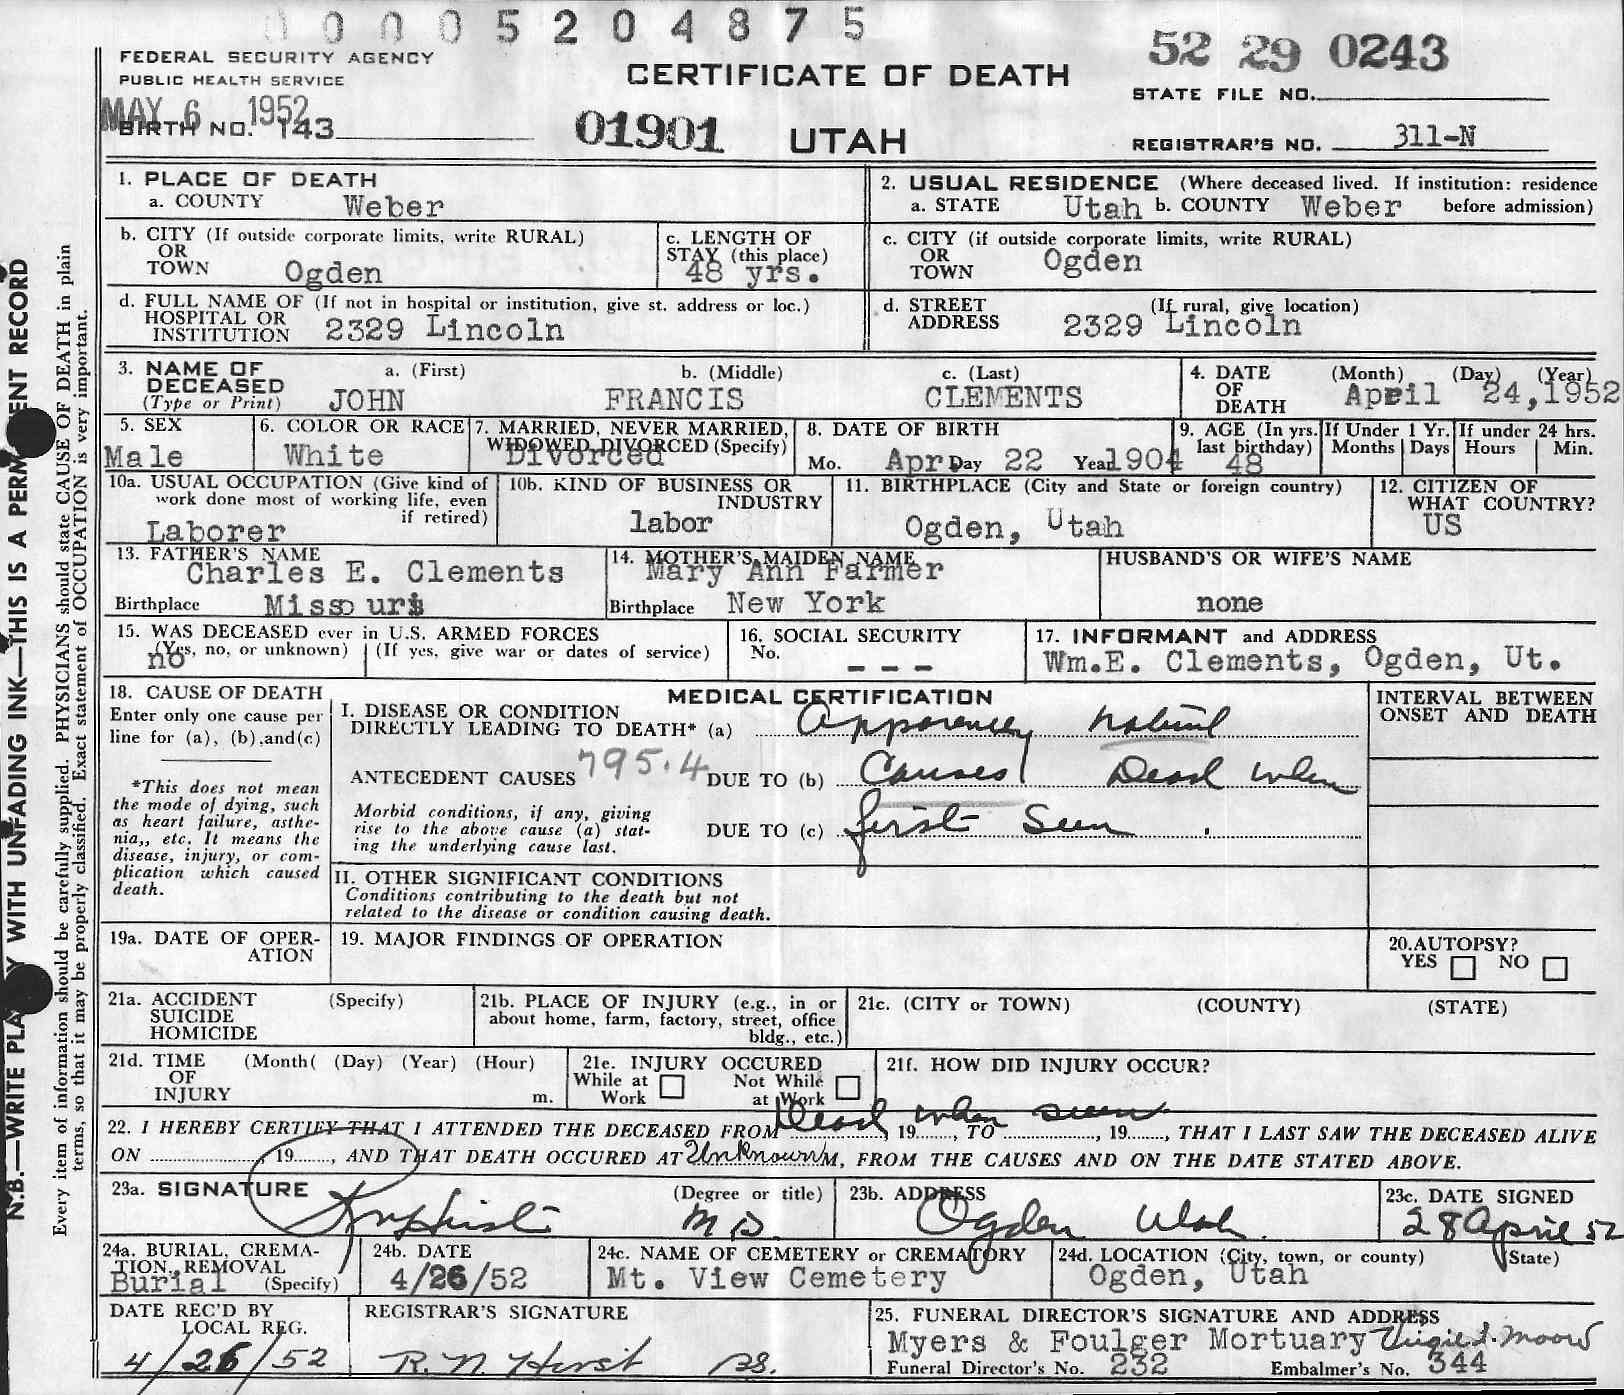 00005204875
FEDERAL SECURITY AGENCY
PUBLIC HEALTH SERVICE
CERTIFICATE OF DEATH
52 29 0243
STATE FILE NO.
MAY 6 1952
BIRTH NO. 143
01901 UTAH
REGISTRAR'S NO. 311-N
1. PLACE OF DEATH
a. COUNTY Weber
2. USUAL RESIDENCE (Where deceased lived. If institution: residence
a. STATE Utah b. COUNTY Weber before admission)
b. CITY (If outside corporate limits, write RURAL)
OR
TOWN Ogden
c. LENGTH OF
STAY (this place)
48 yrs.
c. CITY (if outside corporate limits, write RURAL)
OR
TOWN Ogden
d. FULL NAME OF (If not in hospital or institution, give st. address or loc.)
HOSPITAL OR
INSTITUTION 2329 Lincoln
d. STREET (If rural, give location)
ADDRESS 2329 Lincoln
3. NAME OF
DECEASED
(Type or Print)
a. (First) b. (Middle) c. (Last)
JOHN FRANCIS CLEMENTS
4. DATE
OF
DEATH
(Month) (Day) (Year)
April 24, 1952
5. SEX
Male
6. COLOR OR RACE
White
7. MARRIED, NEVER MARRIED,
WIDOWED, DIVORCED (Specify)
Divorced
8. DATE OF BIRTH
Mo. Apr Day 22 Year 1904
9. AGE (In yrs.
last birthday)
48
If Under 1 Yr.
Months Days
If under 24 hrs.
Hours Min.
10a. USUAL OCCUPATION (Give kind of
work done most of working life, even
if retired)
Laborer
10b. KIND OF BUSINESS OR
INDUSTRY
labor
11. BIRTHPLACE (City and State or foreign country)
Ogden, Utah
12. CITIZEN OF
WHAT COUNTRY?
US
13. FATHER'S NAME
Charles E. Clements
Birthplace Missouri
14. MOTHER'S MAIDEN NAME
Mary Ann Farmer
Birthplace New York
HUSBAND'S OR WIFE'S NAME
none
15. WAS DECEASED ever in U.S. ARMED FORCES
(Yes, no, or unknown) (If yes, give war or dates of service)
no
16. SOCIAL SECURITY
No. - - -
17. INFORMANT and ADDRESS
Wm.E. Clements, Ogden, Ut.
18. CAUSE OF DEATH
Enter only one cause per
line for (a), (b), and (c)
*This does not mean
the mode of dying, such
as heart failure, asthe-
nia,, etc. It means the
disease, injury, or com-
plication which caused
death.
MEDICAL CERTIFICATION
I. DISEASE OR CONDITION
DIRECTLY LEADING TO DEATH* (a) Apparency natural
ANTECEDENT CAUSES 795.4 DUE TO (b) Causes Dead when
Morbid conditions, if any, giving
rise to the above cause (a) stat-
ing the underlying cause last.
DUE TO (c) first seen .
INTERVAL BETWEEN
ONSET AND DEATH
II. OTHER SIGNIFICANT CONDITIONS
Conditions contributing to the death but not
related to the disease or condition causing death.
19a. DATE OF OPER-
ATION
19. MAJOR FINDINGS OF OPERATION
20. AUTOPSY?
YES NO
21a. ACCIDENT (Specify)
SUICIDE
HOMICIDE
21b. PLACE OF INJURY (e.g., in or
about home, farm, factory, street, office
bldg., etc.)
21c. (CITY or TOWN) (COUNTY) (STATE)
21d. TIME (Month( (Day) (Year) (Hour)
OF
INJURY m.
21e. INJURY OCCURED
While at Work Not While at Work
21f. HOW DID INJURY OCCUR?
Dead when seen
22. I HEREBY CERTIFY THAT I ATTENDED THE DECEASED FROM ........, 19......, TO ........, 19......, THAT I LAST SAW THE DECEASED ALIVE
ON ........ 19......, AND THAT DEATH OCCURED AT Unknown M, FROM THE CAUSES AND ON THE DATE STATED ABOVE.
23a. SIGNATURE (Degree or title)
Hirst M D.
23b. ADDRESS
Ogden Utah.
23c. DATE SIGNED
28 April 52
24a. BURIAL, CREMA-
TION, REMOVAL
Burial (Specify)
24b. DATE
4/26/52
24c. NAME OF CEMETERY or CREMATORY
Mt. View Cemetery
24d. LOCATION (City, town, or county) (State)
Ogden, Utah
DATE REC'D BY
LOCAL REG.
4/26/52
REGISTRAR'S SIGNATURE
R. N. Hirst
25. FUNERAL DIRECTOR'S SIGNATURE AND ADDRESS
Myers & Foulger Mortuary Virgie I. Moore
Funeral Director's No. 232 Embalmer's No. 344
N.B.—WRITE PLAINLY WITH UNFADING INK—THIS IS A PERMANENT RECORD
Every item of information should be carefully supplied. PHYSICIANS should state CAUSE OF DEATH in plain
terms, so that it may be properly classified. Exact statement of OCCUPATION is very important.